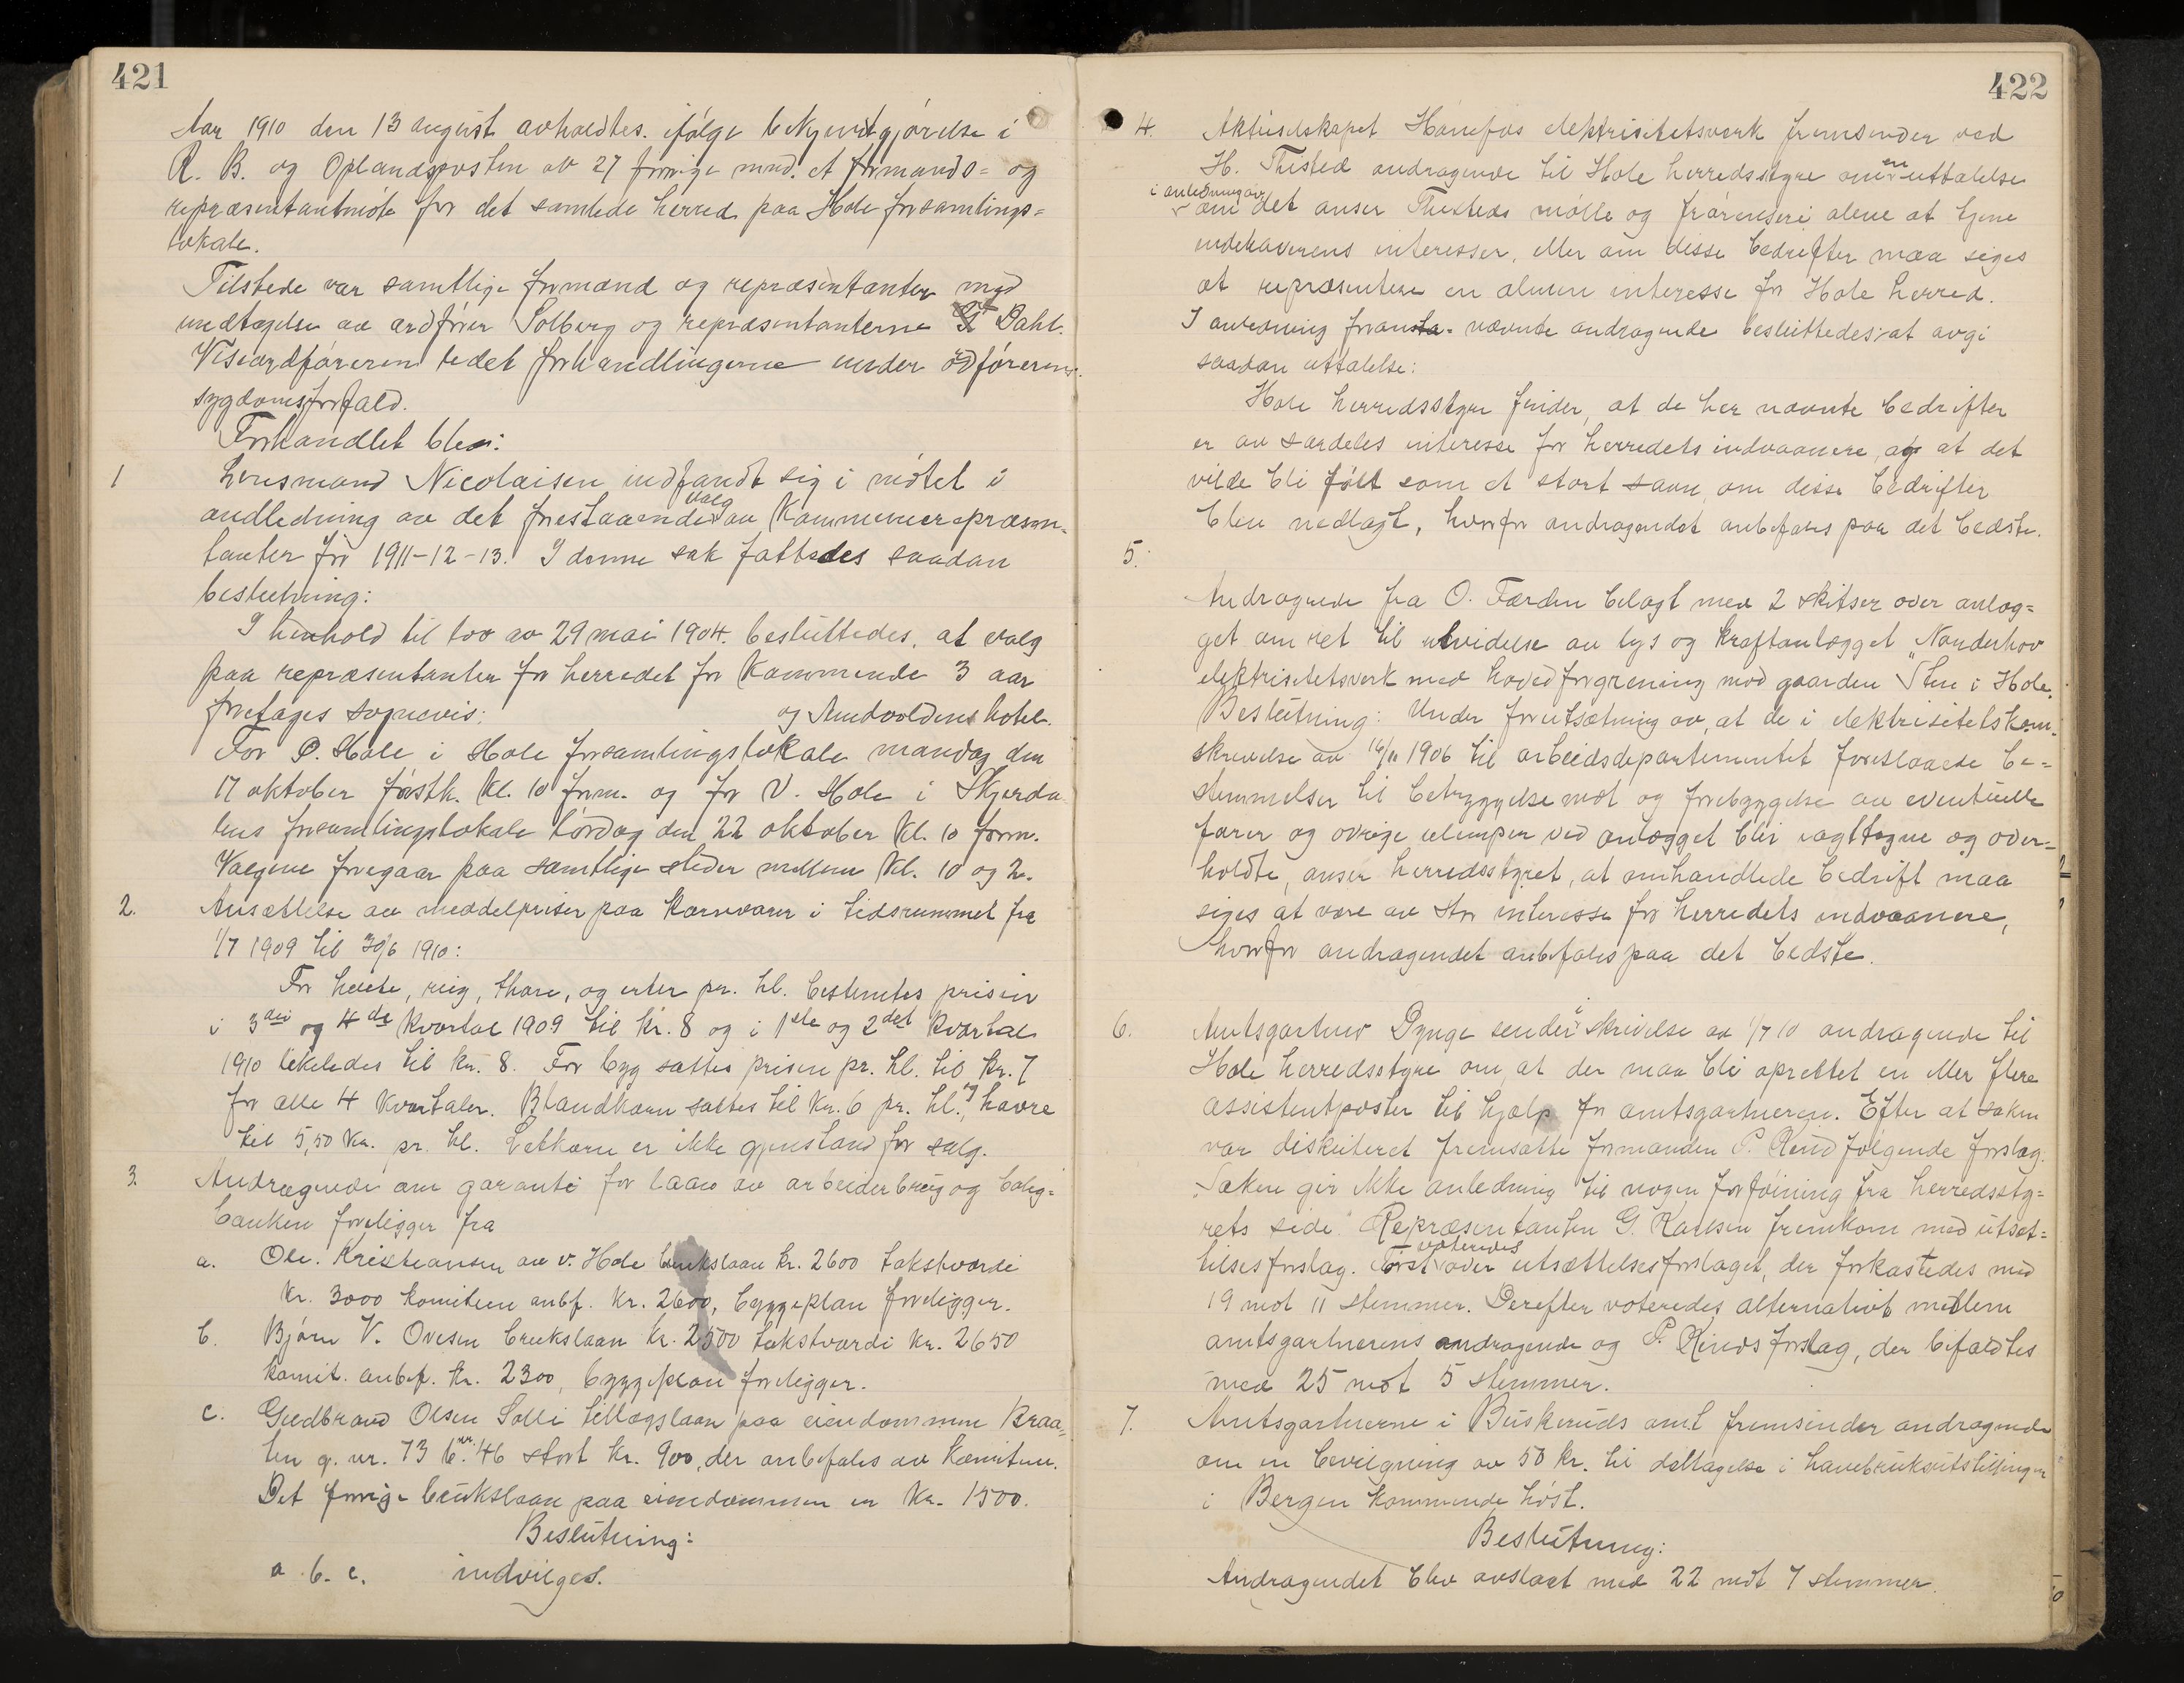 421
Aar 1910 den 13 august avholdtes ifølge bekjendtgjørelse i
R. B. og Oplandsposten av 27 forrige mnd. et formands= og
repræsentantmøte for det samlede herred paa Hole forsamlings=
lokale.
Tilstede var samtlige formænd og repræsentanter med
undtagelse av ordfører Solberg og repræsentanterne Dahl.
Viseordføreren ledet forhandlingerne under ordførerens
sygdomsforfald.
Forhandlet blev:
1 Lensmand Nicolaisen indfandt sig i møtet i
andledning av det forestaaende valg av kommunerepræsen=
tanter for 1911-12-13. I denne sak fattedes saadan
beslutning:
I henhold til lov av 29 mai 1904 besluttedes, at valg
paa repræsentanter for herredet for kommende 3 aar
foretages sognevis: og Sundvoldens hotel.
For Ø. Hole i Hole forsamlingslokale mandag den
17 oktober førstk. kl. 10 form. og for V. Hole i Skjærda
lens forsamlingslokale lørdag den 22 oktober kl. 10 form.
Valgene foregaar paa samtlige steder mellem kl. 10 og 2.
2. Ansættelse av meddelpriser paa kornvarer i tidsrummet fra
1/7 1909 til 30/6 1910:
For hvete, rug, og erter pr. hl. bestemtes prisen
i 3die og 4de kvartal 1909 til kr. 8 og i 1ste og 2det kvartal
1910 likeledes til kr. 8. For byg sattes prisen pr. hl. til kr. 7
for alle 4 kvartaler. Blandkorn sattes til kr. 6 pr. hl., og havre
til 5,50 kr. pr. hl. Letkorn er ikke gjenstand for salg.
3. Andragende om garanti for laan av arbeiderbrug og bolig=
banken foreligger fra
a. Ole Kristiansen av v. Hole brukslaan kr. 2600 takstværdi
kr. 3000 komiteen anbf. kr. 2600, byggeplan foreligger.
b. Bjørn V. Ovesen brukslaan kr. 2500 takstværdi kr. 2650
komit. anbef. kr. 2300, byggeplan foreligger.
c. Gudbrand Olsen Solli tillægslaan paa eiendommen Braa=
ten g. nr. 73 b. nr. 46 stort kr. 900, der anbefales av komiteen.
Det forrige brukslaan paa eiendommen er kr. 1500.
Beslutning:
a. b. c. indvilges.
422
4. Aktieselskapet Hønefos elektrisitetsverk fremsender ved
H. Thisted andragende til Hole herredsstyre om en uttalelse
i anledning av
om det anser Thisteds mølle og alene at tjene
indehaverens interesser, eller om disse bedrifter maa siges
at repræsentere en almen interesse for Hole herred.
I anledning foran nævnte andragende besluttedes at avgi
saadan uttalelse:
Hole herredsstyre finder, at de her nævnte bedrifter
er av særdeles interesse for herredets indvaanere, og at det
vilde bli følt som et stort savn, om disse bedrifter
blev nedlagt, hvorfor andragendet anbefales paa det bedste.
5.
Andragende fra O. Færden bilagt med 2 skitser over anlæg=
get om ret til utvidelse av lys og kraftanlægget „Norderhov
elektrisitetsverk med hovedforgrening mod gaarden Sten i Hole.
Beslutning: Under forutsætning av, at de i elektrisitetskom.
skrivelse av 16/11 1906 til arbeidsdepartementet foreslaaede be=
stemmelser til betryggelse mot og forebyggelse av eventuelle
farer og øvrige ulemper ved anlægget blir iagttagne og over=
holdte, anser herredsstyret, at omhandlede bedrift maa
siges at være av stor interesse for herredets indvaanere,
hvorfor andragendet anbefales paa det bedste.
6. Amtsgartner Dynge sender i skrivelse av 1/7 10 andragende til
Hole herredsstyre om, at der maa bli oprettet en eller flere
assistentposter til hjælp for amtsgartneren. Efter at saken
var diskuteret fremsatte formanden P. Rud følgende forslag:
„Saken gir ikke anledning til nogen forføining fra herredssty=
rets side." Repræsentanten G. Karlsen fremkom med utsæt=
telsesforslag. Først voteredes over utsættelsesforslaget, der forkastedes med
19 mot 11 stemmer. Derefter voteredes alternativt mellem
amtsgartnerens andragende og P. Ruds forslag, der bifaldtes
med 25 mot 5 stemmer.
7. Amtsgartnerne i Buskeruds amt fremsender andragende
om en bevilgning av 50 kr. til deltagelse i havebruksutstillingen
i Bergen kommende høst.
Beslutning:
Andragendet blev avslaat med 22 mot 7 stemmer.